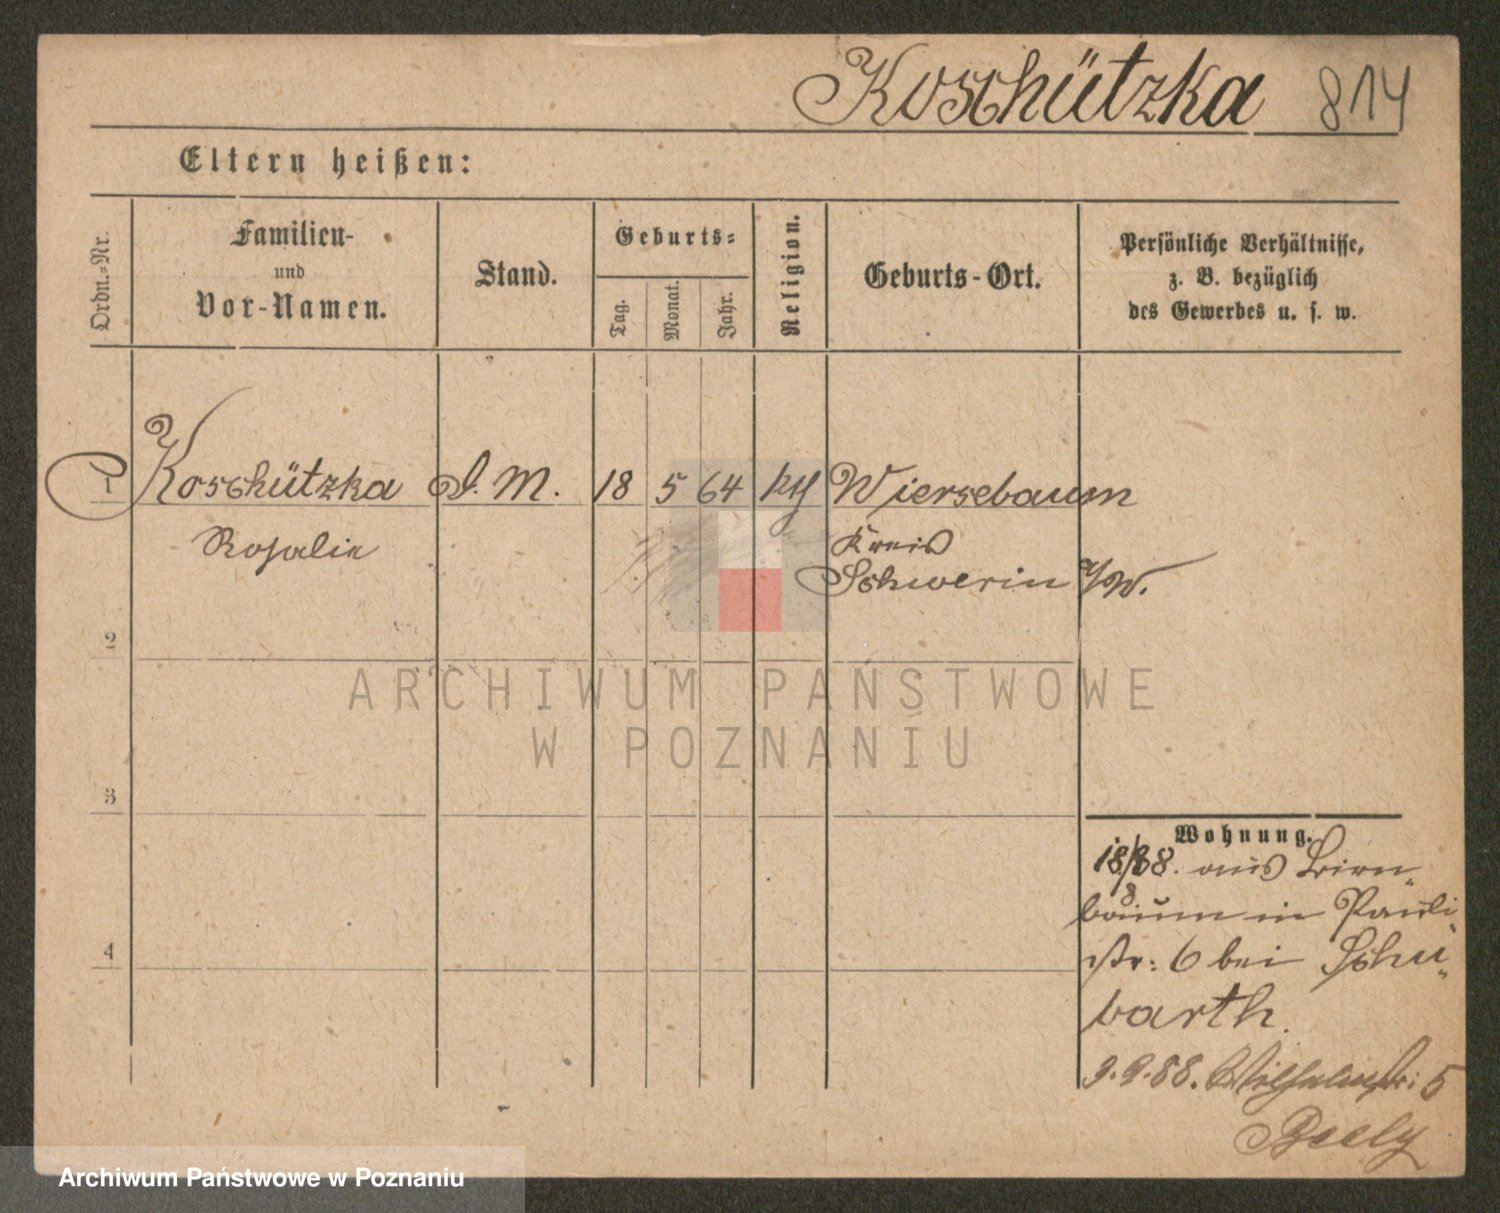 Koschützka 814
Eltern heißen:
Ordn.=Nr.
Familien-
und
Vor-Namen.
Stand.
Geburts=
Tag.
Monat.
Jahr.
Religion.
Geburts-Ort.
Persönliche Verhältnisse,
z. B. bezüglich
des Gewerbes u. s. w.
1 Koschützka D. M. 18 5 64 kth Wiersebaum
Rosalie Kreis
Schwerin a/W.
2
3
4
Wohnung.
18/8 88. aus Birn-
baum in Pauli
str: 6 bei Schu-
barth.
9.9.88. Wilhelmstr: 5
Beely
ARCHIWUM PAŃSTWOWE
W POZNANIU
Archiwum Państwowe w Poznaniu